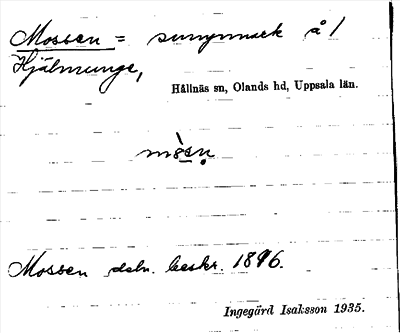 Mossen = sumpmark å 1
Hjälmunge,
Hållnäs sn, Olands hd, Uppsala län.
Mossen deln. beskr. 1896.
Ingegärd Isaksson 1935.